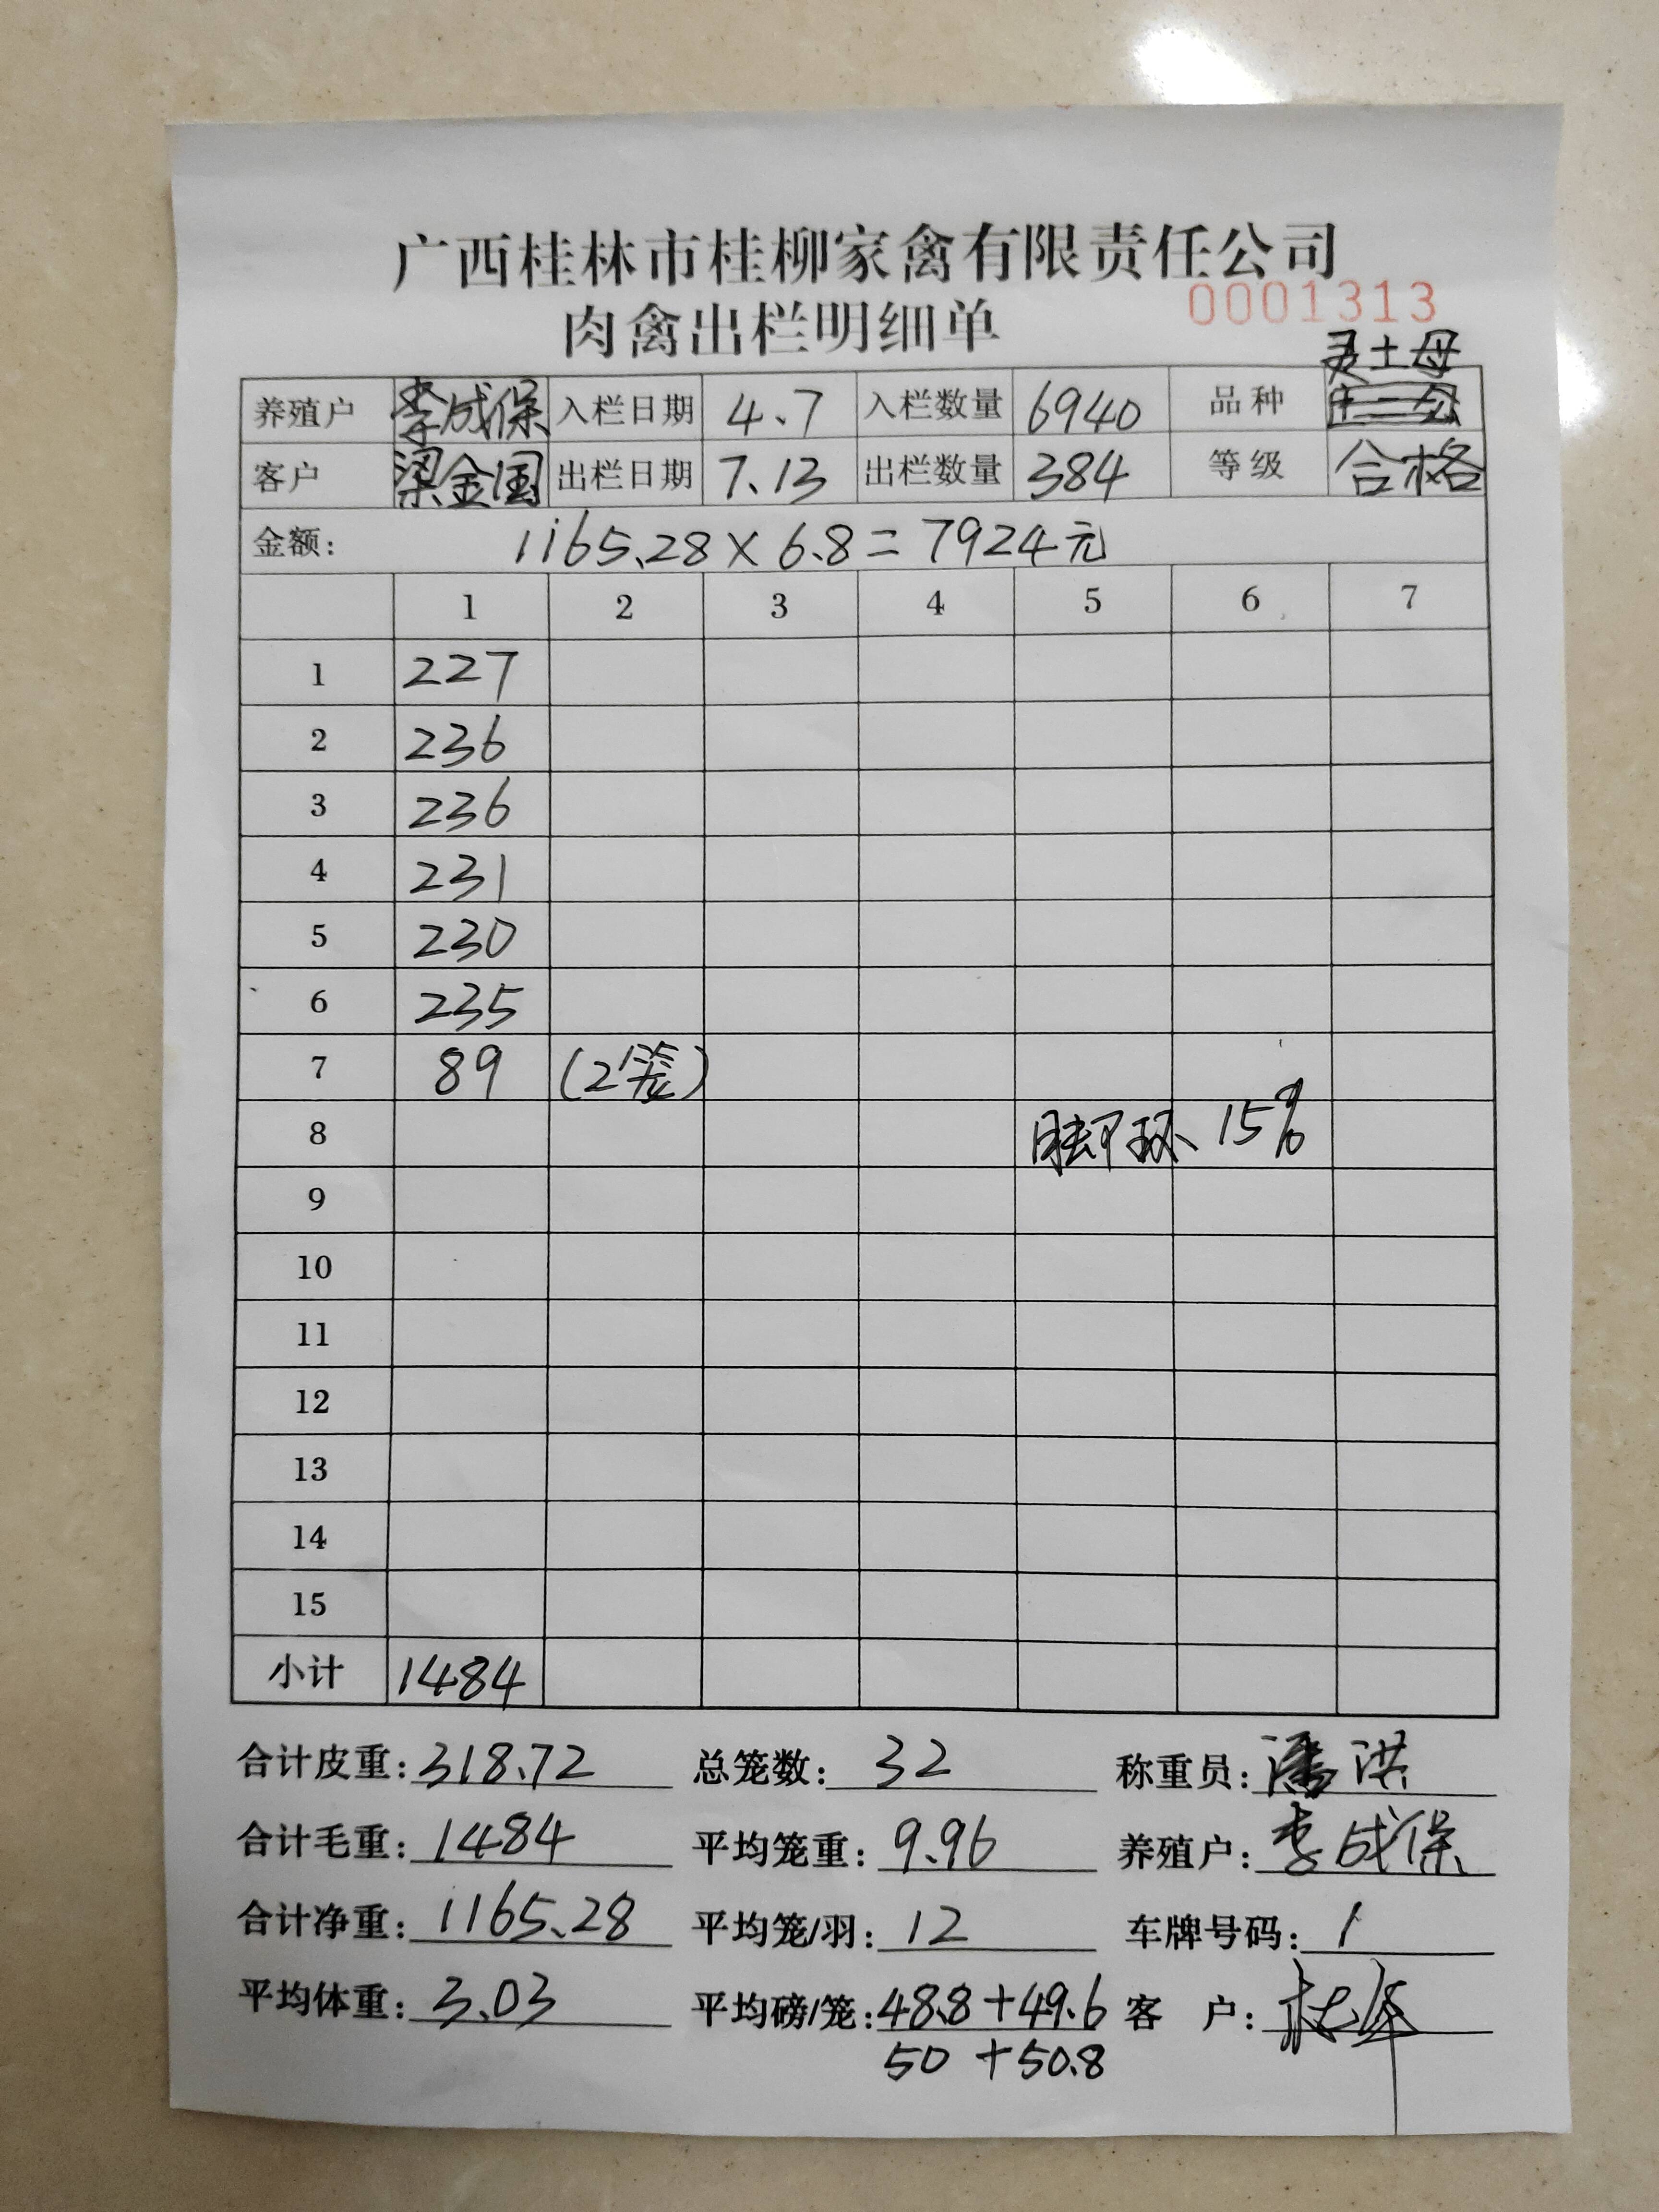 广西桂林市桂柳家禽有限责任公司
0001313
肉禽出栏明细单
土母
养殖户 李成保 入栏日期 4.7 入栏数量 6940 品种
客户 梁金国 出栏日期 7.13 出栏数量 384 等级 合格
金额: 1165.28×6.8=7924元
1 2 3 4 5 6 7
1 227
2 236
3 236
4 231
5 230
6 235
7 89 (2笼)
8 脚环 15%
9
10
11
12
13
14
15
小计 1484
合计皮重: 318.72 总笼数: 32 称重员: 潘洪
合计毛重: 1484 平均笼重: 9.96 养殖户: 李成保
合计净重: 1165.28 平均笼/羽: 12 车牌号码: 1
平均体重: 3.03 平均磅/笼: 48.8+49.6 客户:
50+50.8